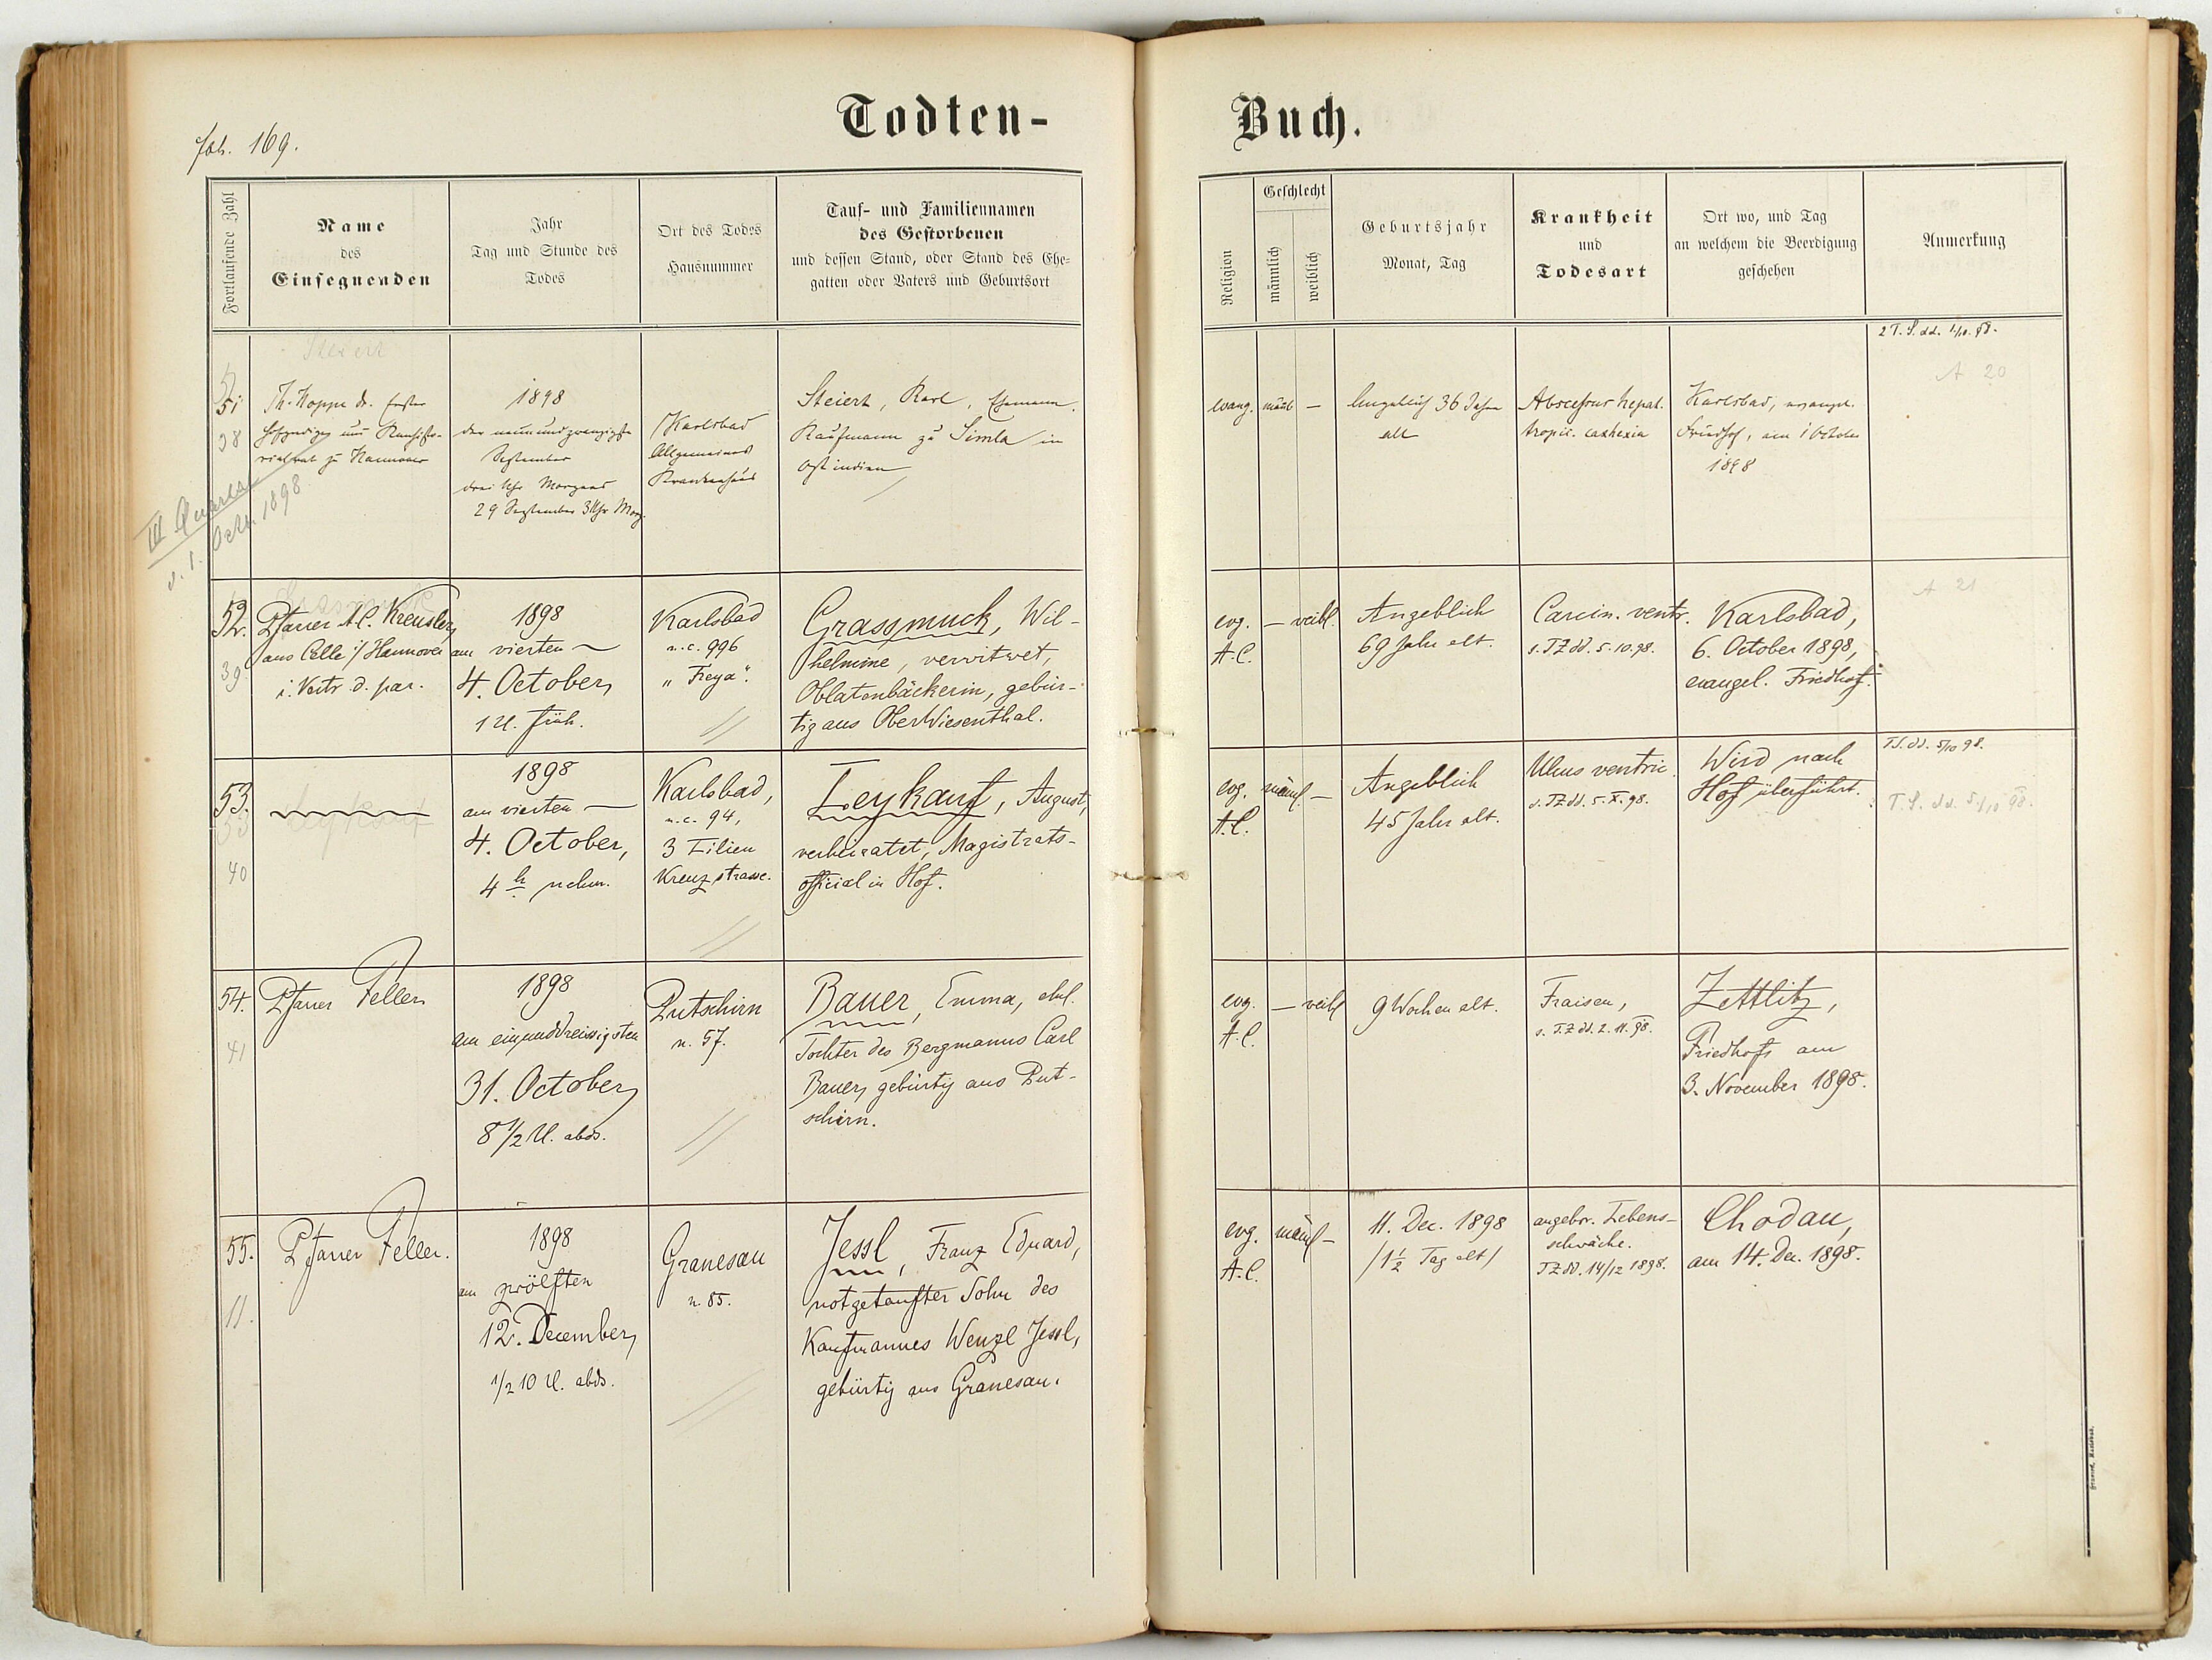 Todten-
Buch.
fol. 169.
Fortlaufende Zahl
Name
des
Einsegnenden
Jahr
Tag und Stunde des
Todes
Ort des Todes
Hausnummer
Tauf- und Familiennamen
des Gestorbenen
und dessen Stand, oder Stand des Ehe-
gatten oder Vaters und Geburtsort
Religion
Geschlecht
männlich
weiblich
Geburtsjahr
Monat, Tag
Krankheit
und
Todesart
Ort wo, und Tag
an welchem die Beerdigung
geschehen
Anmerkung
Steiert
51
38
Th. Hoppe dr. Erster
Hofprediger und Konsisto-
rialrat zu Hannover
III Quartal
v. 1. Octr. 1898.
1898
der neunundzwanzigste
September
drei Uhr Morgens
29 September 3 Uhr Morg.
Karlsbad
Allgemeines
Krankenhaus
Steiert, Karl, Ehemann.
Kaufmann zu Simla in
Ostindien
evang.
männl
—
Angeblich 36 Jahre
alt
Abscessus hepat.
tropic. cachexia
Karlsbad, evangel.
Friedhof, am 1 October
1898
2 T.S. dd. 1/10. 98.
A 20
52.
39
Pfarrer A.C. Kreusler,
aus Celle i/ Hannover
i. Vertr. d. par.
1898
am vierten —
4. October,
1 U. früh.
Karlsbad
n.c. 996
„Freya".
Grassmuck, Wil-
helmine, verwitwet,
Oblatenbäckerin, gebür-
tig aus OberWiesenthal.
evg.
A.C.
— weibl.
Angeblich
69 Jahre alt.
Carcin. ventr.
s. TZ dd. 5.10.98.
Karlsbad,
6. October 1898,
evangel. Friedhof.
A 21
53.
40
Leykauf
1898
am vierten —
4. October,
4 h nchm.
Karlsbad,
n.c. 94,
3 Lilien
Kreuzstrasse.
Leykauf, August,
verheiratet, Magistrats-
official in Hof.
evg.
A.C.
männl. —
Angeblich
45 Jahr alt.
Ulcus ventric.
s. TZ dd. 5.X.98.
Wird nach
Hof überführt.
TS. dd. 5/10 98.
T.S. dd. 5/10 98.
54.
41
Pfarrer Feller
1898
am einunddreissigsten
31. October,
8 1/2 U. abds.
Putschirn
n. 57.
Bauer, Emma, ehel.
Tochter des Bergmanns Carl
Bauer, gebürtig aus Put-
schirn.
evg.
A.C.
— weibl
9 Wochen alt.
Fraisen,
s. T.Z dd. 2.11.98.
Zettlitz,
Friedhofs am
3. November 1898.
55.
11.
Pfarrer Feller.
1898
am zwölften
12. December,
1/2 10 U. abds.
Granesau
n. 85.
Jessl, Franz Eduard,
notgetaufter Sohn des
Kaufmannes Wenzl Jessl,
gebürtig aus Granesau.
evg.
A.C.
männl —
11. Dec. 1898
/1 1/2 Tag alt/
angebor. Lebens-
schwäche.
TZ dd. 14/12 1898.
Chodau,
am 14. Dec. 1898.